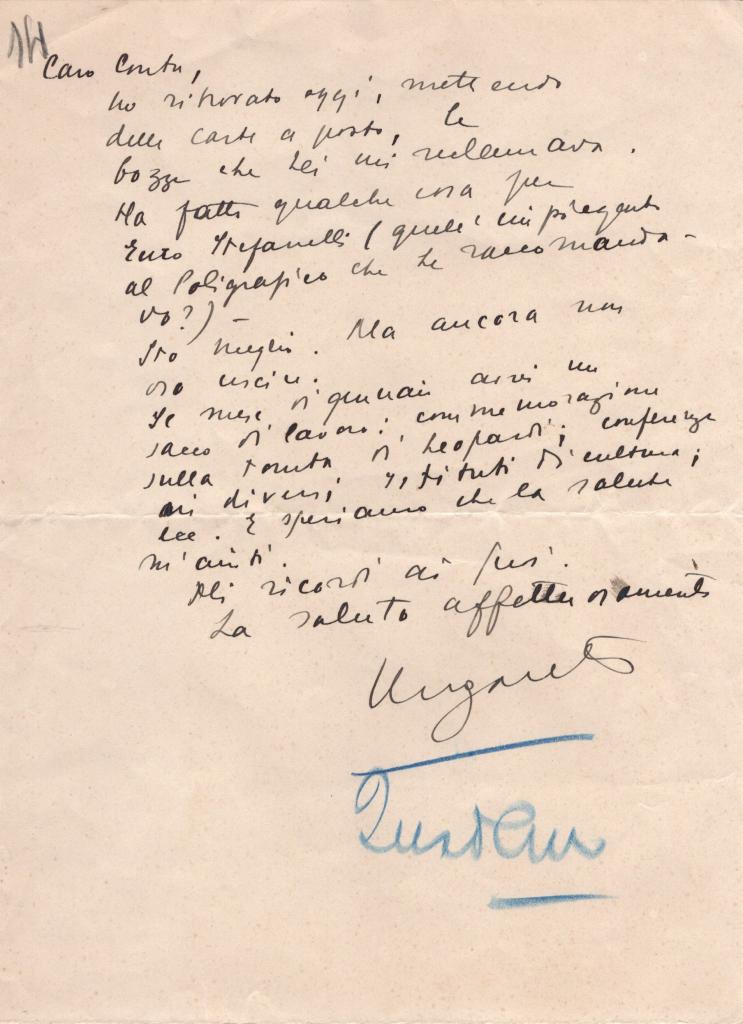 Caro Conte,
ho ritrovato oggi, mettendo
delle carte a posto, le
bozze che Lei mi reclamava.
Ha fatto qualche cosa per
Enzo Stefanelli (quell'impiegato
al Poligrafico che Le raccomanda-
vo?) –
Sto meglio. Ma ancora non
oso uscire.
Il mese di gennaio avrò un
sacco di lavoro: commemorazione
sulla tomba di Leopardi; conferenze
in diversi Istituti di cultura;
ecc. E speriamo che la salute
m'aiuti.
Mi ricordi ai Suoi.
La saluto affettuosamente
Ungaretti